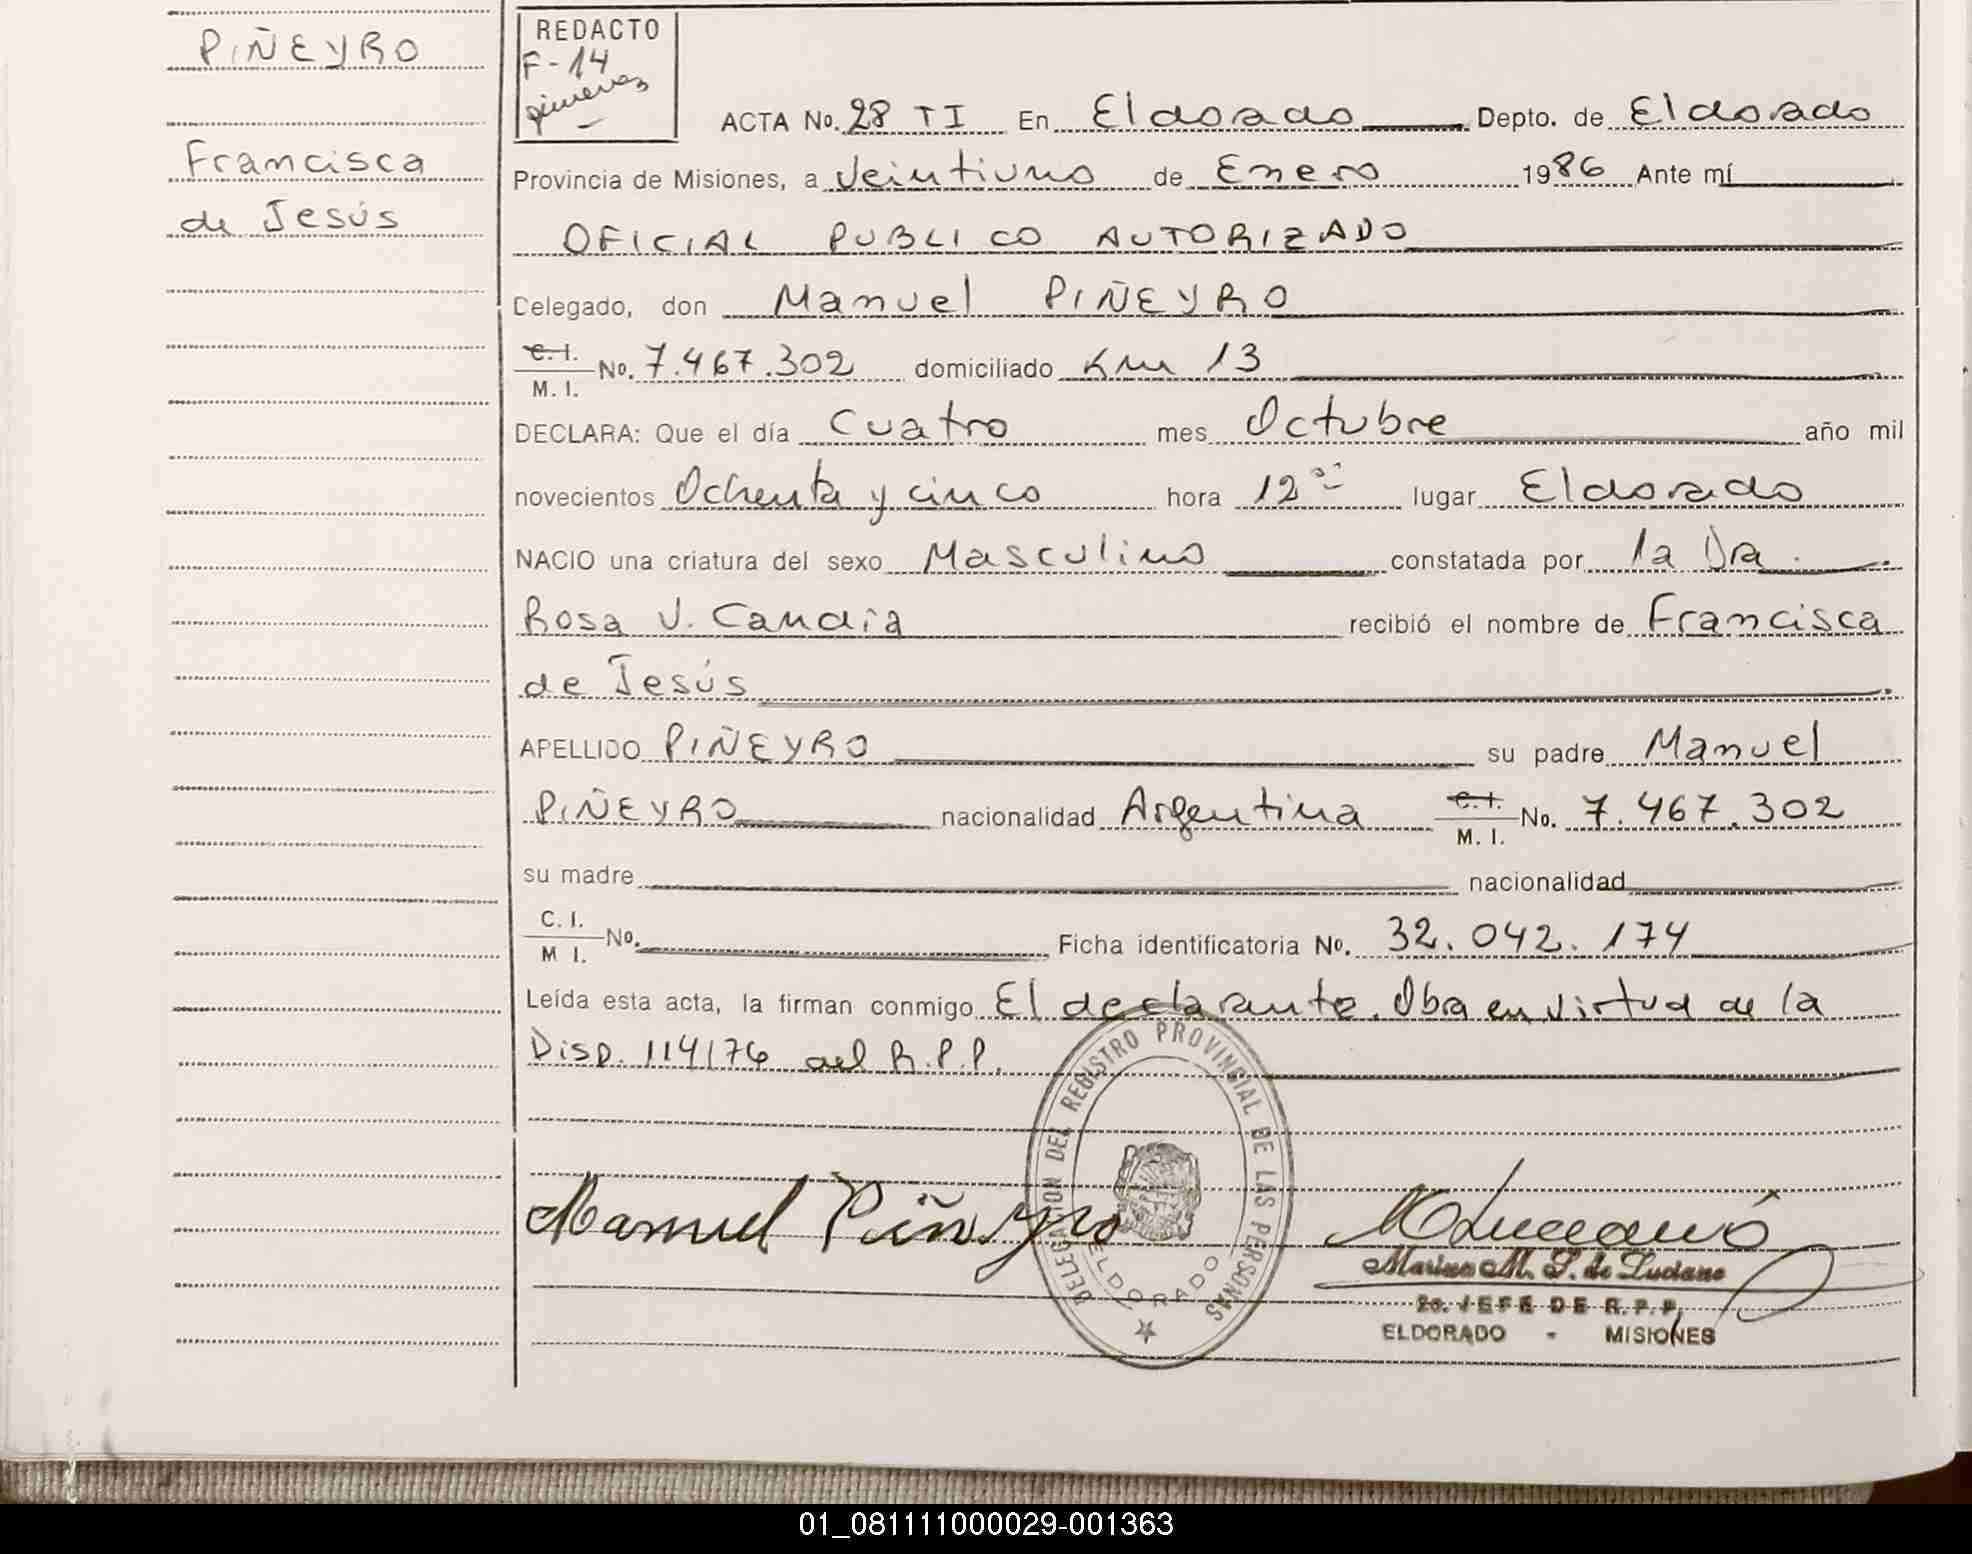 PIÑEYRO
Francisca
de Jesús
REDACTO
F-14
Gimenez
ACTA No. 28 TI En Eldorado Depto. de Eldorado
Provincia de Misiones, a Veintiuno de Enero 1986 Ante mí
OFICIAL PUBLICO AUTORIZADO
Celegado, don Manuel PIÑEYRO
C. I.
M. I. No. 7.467.302 domiciliado Km 13
DECLARA: Que el día Cuatro mes Octubre año mil
novecientos Ochenta y cinco hora 12 lugar Eldorado
NACIO una criatura del sexo Masculino constatada por la Dra.
Rosa V. Candia recibió el nombre de Francisca
de Jesús
APELLIDO PIÑEYRO su padre Manuel
PIÑEYRO nacionalidad Argentina C. I. M. I. No. 7.467.302
su madre nacionalidad
C. I.
M I. No. Ficha identificatoria No. 32.042.174
Leída esta acta, la firman conmigo El declarante. Obra en virtud de la
Disp. 114/76 del R.P.P.
DELEGACION DEL REGISTRO PROVINCIAL DE LAS PERSONAS
ELDORADO
Manuel Piñeyro
M. S. de Luciano
2o. JEFE DE R.P.P.
ELDORADO - MISIONES
01_081111000029-001363